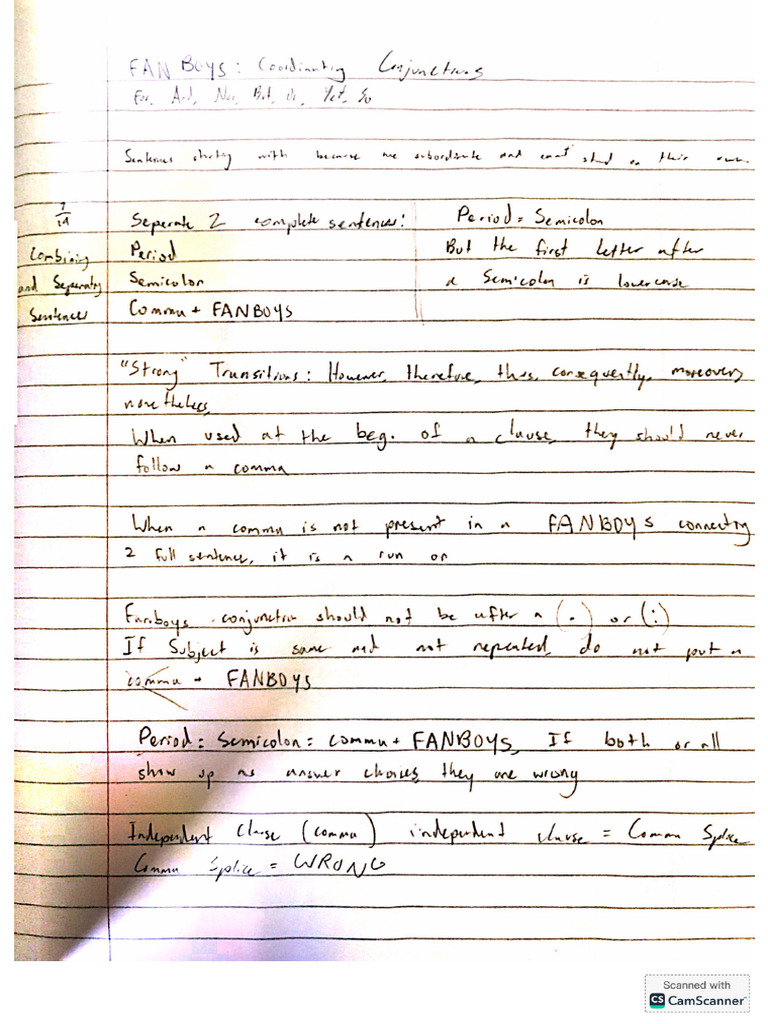 FAN BOYS: Coordinating Conjunctions
For, And, Nor, But, Or, Yet, So
Sentences starting with because are subordinate and can't stand on their own
7/19
Combining and Seperating Sentences
Seperate 2 complete sentences:
Period
Semicolon
Comma + FANBOYS
Period = Semicolon
But the first letter after
a Semicolon is lowercase
"Strong" Transitions: However, therefore, thus, consequently, moreover,
nonetheless,
When used at the beg. of a clause, they should never
follow a comma
When a comma is not present in a FANBOYS connecting
2 full sentence, it is a run on
Fanboys conjunction should not be after a (.) or (;)
If Subject is same and not repeated, do not put a
comma + FANBOYS
Period = Semicolon = comma + FANBOYS, If both or all
show up as answer choices they are wrong
Independent Clause (comma) independent clause = Comma Splice
Comma Splice = WRONG
Scanned with
CS CamScanner